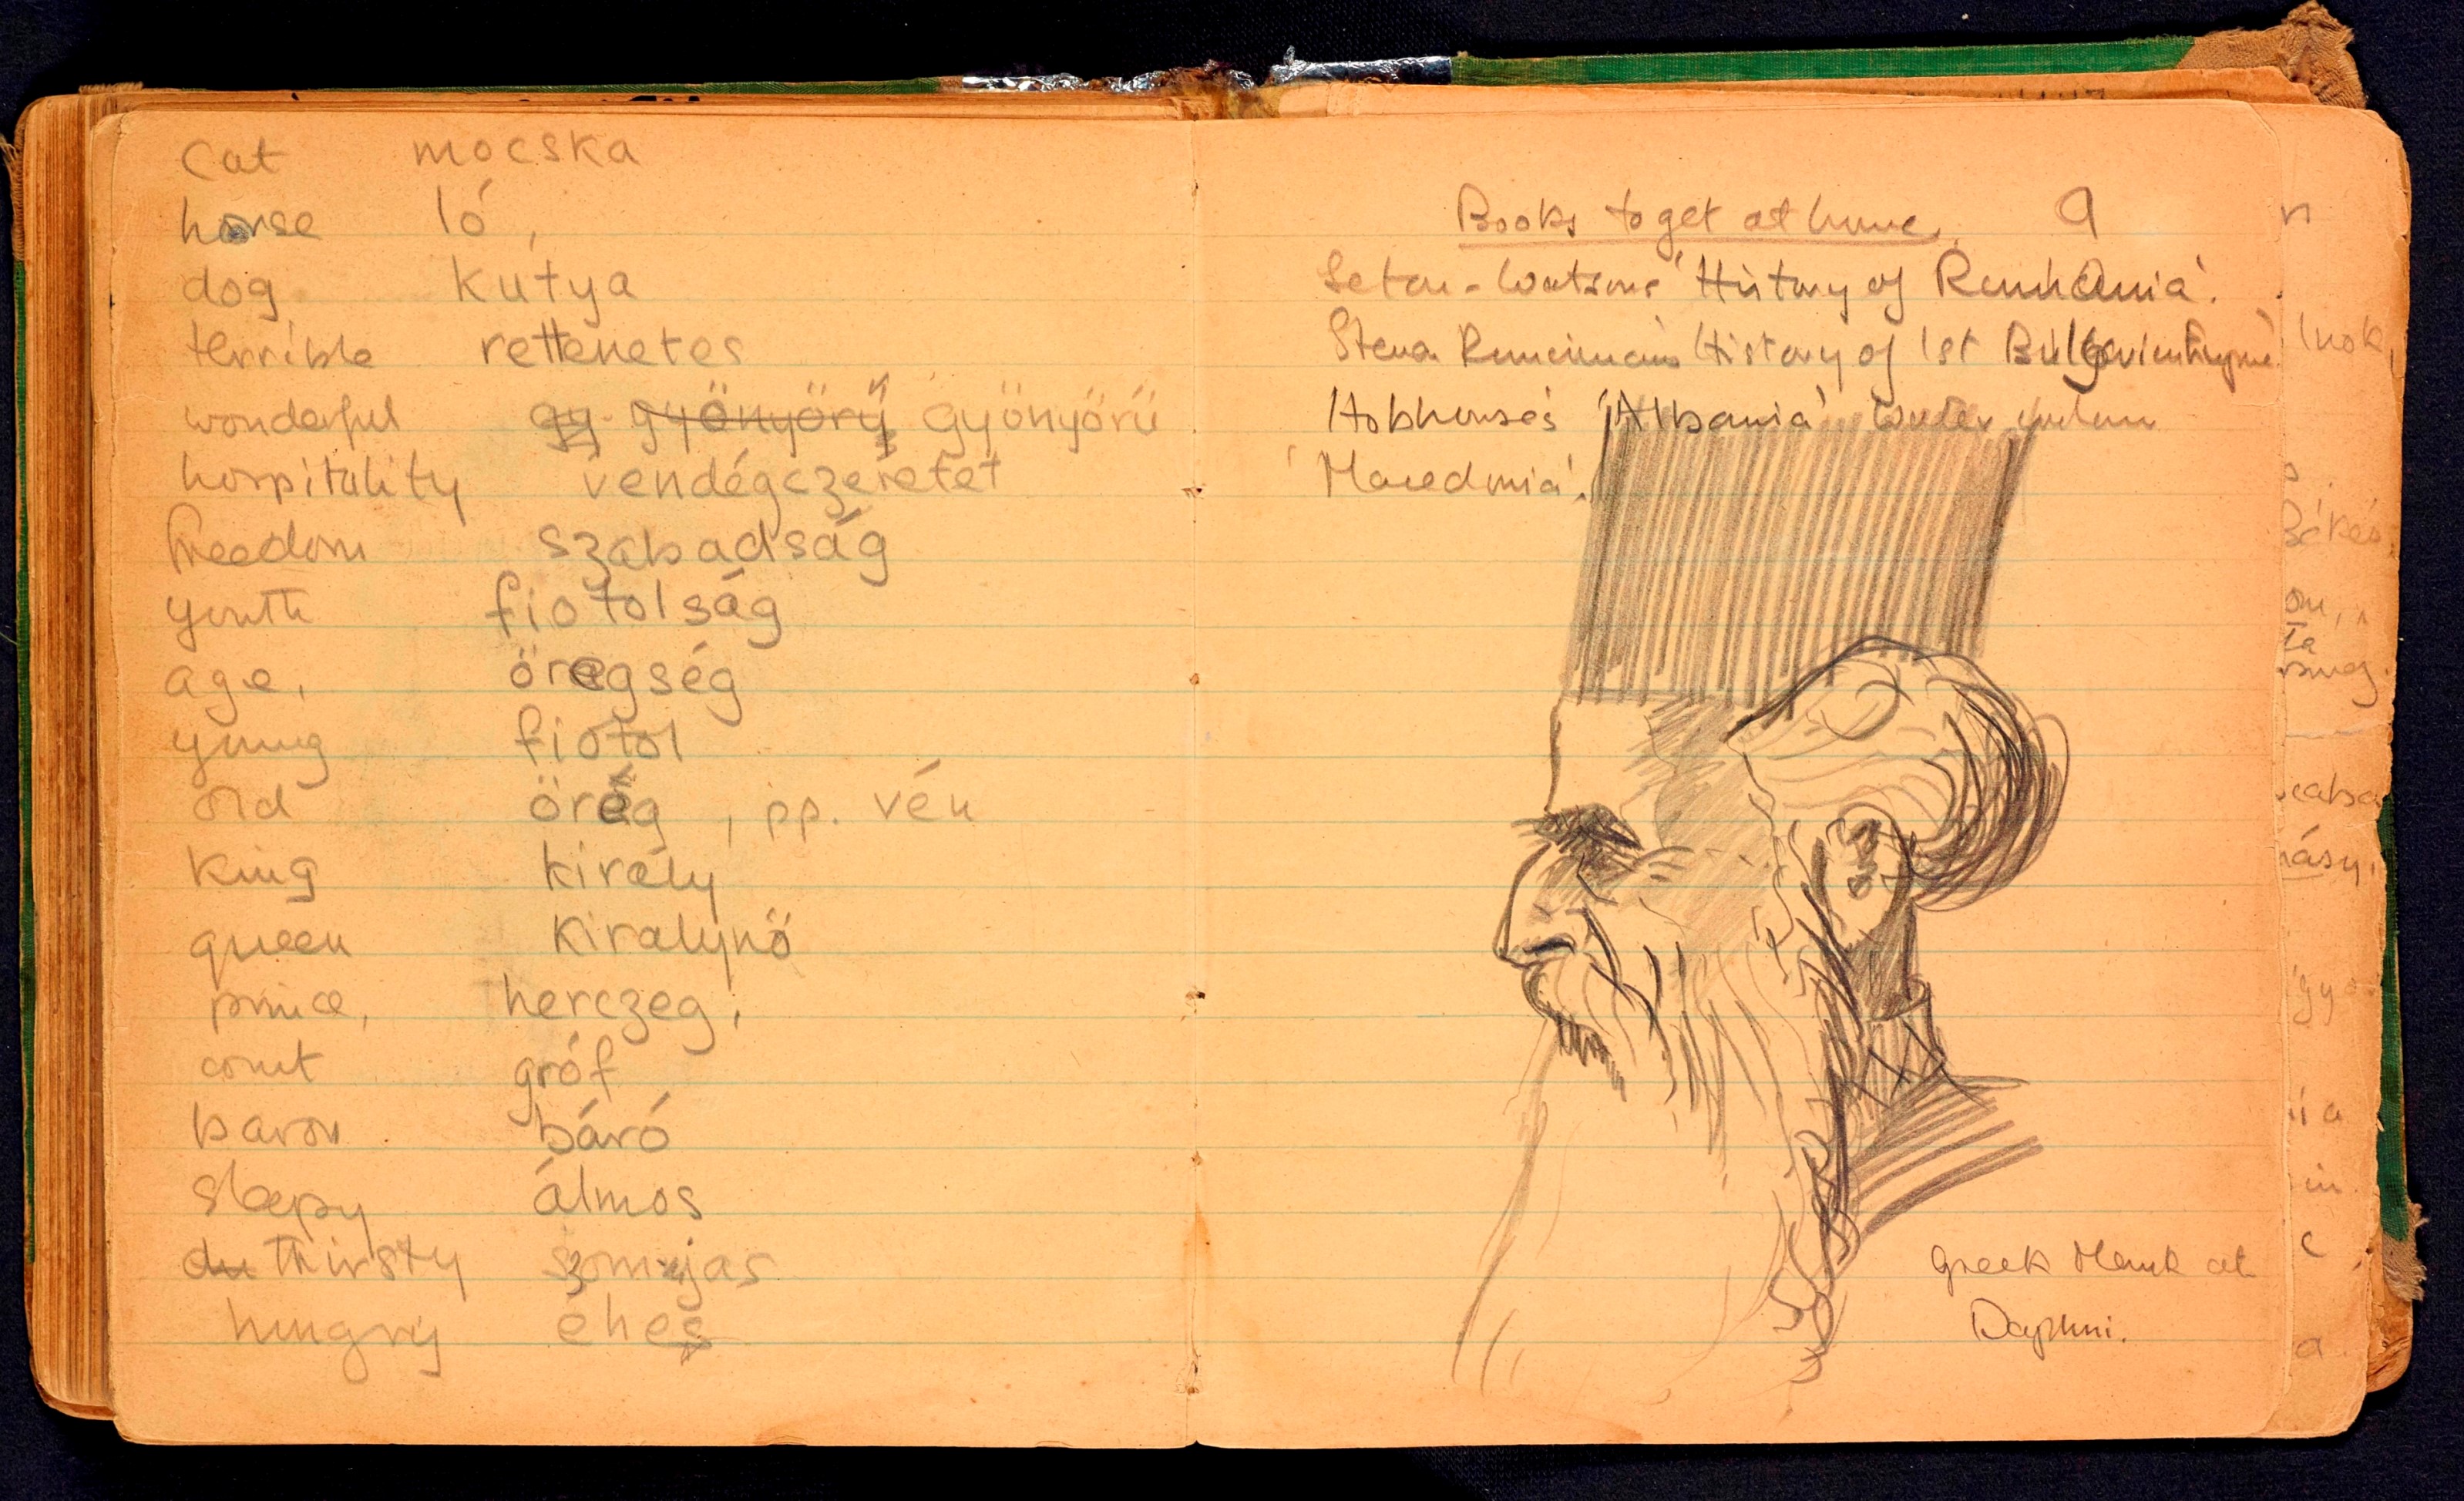 cat mocska
horse ló,
dog kutya
terrible rettenetes
wonderful gy. gyönyörű gyönyörü
hospitality vendégczeretet
freedom szabadság
youth fiotolság
age, öregség
young fiotol
old öreg, pp. vén
king király
queen királynö
prince, herczeg,
count gróf
baron báró
sleepy álmos
thirsty szomjas
hungry éhes
Books to get at home. 9
Seton-Watson's 'History of Roumania'.
Steven Runciman's History of 1st Bulgarian Empire
Hobhouse's 'Albania'
'Macedonia'.
Greek Monk at
Daphni.